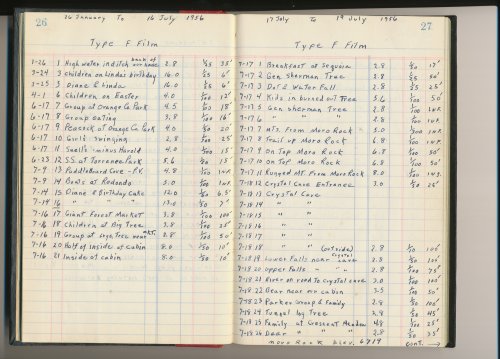 26
26 January To 16 July 1956
Type F Film
1-26 1 High water in ditch back of our house 2.8 1/25 35'
3-24 3 children on Lindas Birthday 16.0 1/25 6'
1-25 3 Diane & Linda 16.0 1/25 6'
4-1 6 Children on Easter 4.0 1/100 12'
6-17 7 Group at Orange Co. Park 4.5 18'
6-17 8 Group eating 3.8 1/100 16'
6-17 9 Peacock at Orange Co. Park 4.0 20'
6-17 10 Girls swinging 2.8 1/100 25'
6-17 11 Snells minus Harold 4.0 1/100 15'
6-23 12 S.S. at Torrance Park 5.6 15'
7-9 13 Paddleboard Cove - P.V. 4.8 1/100 inf.
7-9 14 Boats at Redondo 5.0 1/100 inf.
7-14 15 Diane & Birthday Cake 12.0 5'
7-14 16 " " " 13.0 7'
7-16 17 Giant Forest Market 3.8 1/100 100'
7-16 18 Children at Big Tree 3.8 1/100 25'
7-16 19 Group at 2.8 1/100 50'
7-16 20 Half of Inside of cabin 8.0 10'
7-16 21 Inside of cabin 8.0 10'
27
17 July To 19 July 1956
Type F Film
7-17 1 Breakfast at Sequoia 2.8 15'
7-17 2 Gen Sherman Tree 2.8 1/25 50'
7-17 3 Water Fall 2.8 1/25 25'
7-17 4 Kids in burned out Tree 5.6 1/100 50'
7-17 5 Gen Sherman Tree 2.8 1/100
7-17 6 " " " 2.8 1/100
7-17 7 Mts. From Moro Rock 5.0 1/100 inf.
7-17 8 Trail up Moro Rock 6.8 1/100
7-17 9 On Top Moro Rock 6.8 1/100 50'
7-17 10 On Top Moro Rock 6.8 1/100 50'
7-17 11 Rugged Mt. From Moro Rock 8.0 1/100 inf.
7-18 12 Crystal Cave Entrance 3.0 25'
7-18 13 Crystal Cave
7-18 14 " "
7-18 15 " "
7-18 16 " "
7-18 17 " "
7-18 18 " " (outside) 2.8 100'
7-18 19 Lower Falls near Crystal Cave 2.8 100'
7-18 20 upper Falls " " 2.8 75'
7-18 21 River on road to Crystal Cave 3.0 1/100 100'
7-18 22 Bear near our cabin 3.5 1/100 50'
7-18 23 Parker Group & Family 2.8 100'
7-18 24 Tunnel log Tree 2.8 45'
7-18 25 Family at Crescent Meadow 4.8 1/100 25'
7-18 26 Deer " " 2.8 35'
Moro Rock Elev. 6719 Cont. →